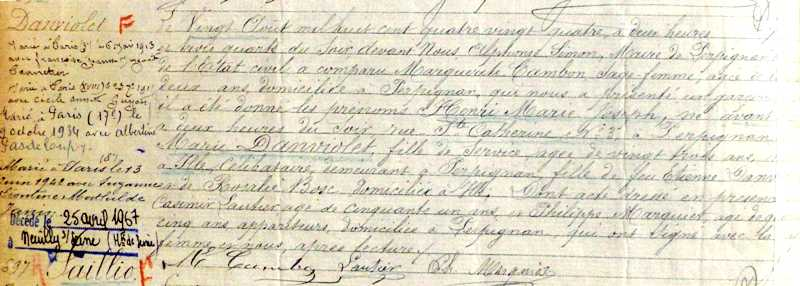 Danviolet F
Marié à Paris 3e le 6 mai 1913
avec
Marié à Paris XVIIIe le 27
avec Cécile
Marié à Paris (17e) le
9 octobre 1934 avec Albertine
Marié à Paris 18e le 13
juin 1942 avec Suzanne
Léontine Mathilde
Décédé le 25 avril 1967
à Neuilly s/Seine (Hts de Seine)
597 Saillio F
Le Vingt Août mil huit cent quatre vingt quatre, à deux heures
et trois quarts du soir devant Nous Alphonse Simon, Maire de Perpignan
de l'état civil a comparu Marguerite Cambon, sage-femme, âgée de
deux ans, domiciliée à Perpignan, qui nous a présenté un garçon
il a été donné les prénoms d'Henri Marie Joseph, né avant
à deux heures du soir, rue Ste Catherine No 3, à Perpignan
Marie Danviolet, fille de service, âgée de vingt trois ans,
à Ille, Célibataire, demeurant à Perpignan, fille de feu Etienne Danv
et de Rosalie Bosc domiciliée à Ille. Dont acte dressé en présence
Casimir Lautier âgé de cinquante un ans, Philippe Marquier, âgé de
cinq ans appariteurs, domiciliés à Perpignan qui ont signé avec la
femme et nous, après lecture./.
Me Cambon Lautier Ph Marquier